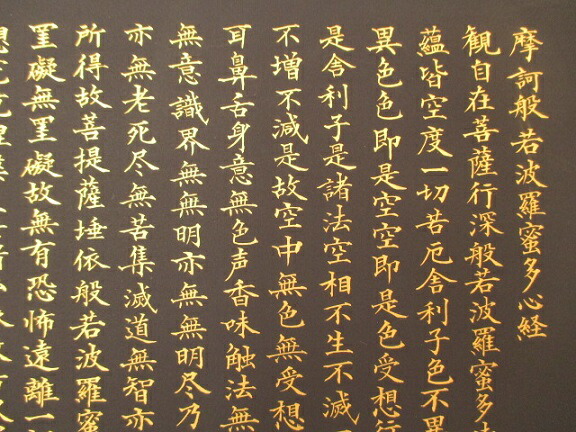 摩訶般若波羅蜜多心経
観自在菩薩行深般若波羅蜜多
蘊皆空度一切苦厄舎利子色不異
異色色即是空空即是色受想行
是舎利子是諸法空相不生不滅
不増不減是故空中無色無受想
耳鼻舌身意無色声香味触法無
無意識界無無明亦無無明尽乃
亦無老死尽無苦集滅道無智亦
所得故菩提薩埵依般若波羅蜜
罣礙無罣礙故無有恐怖遠離一